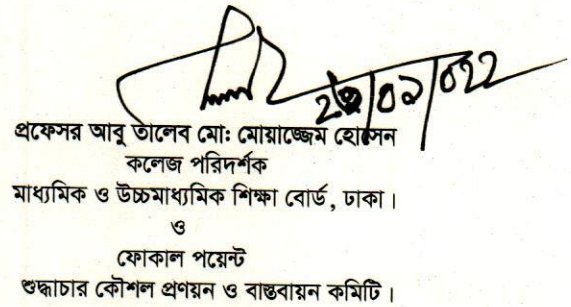 প্রফেসর আবু তালেব মো: মোয়াজ্জেম হোসেন
কলেজ পরিদর্শক
মাধ্যমিক ও উচ্চমাধ্যমিক শিক্ষা বোর্ড, ঢাকা।
ও
ফোকাল পয়েন্ট
শুদ্ধাচার কৌশল প্রণয়ন ও বাস্তবায়ন কমিটি।